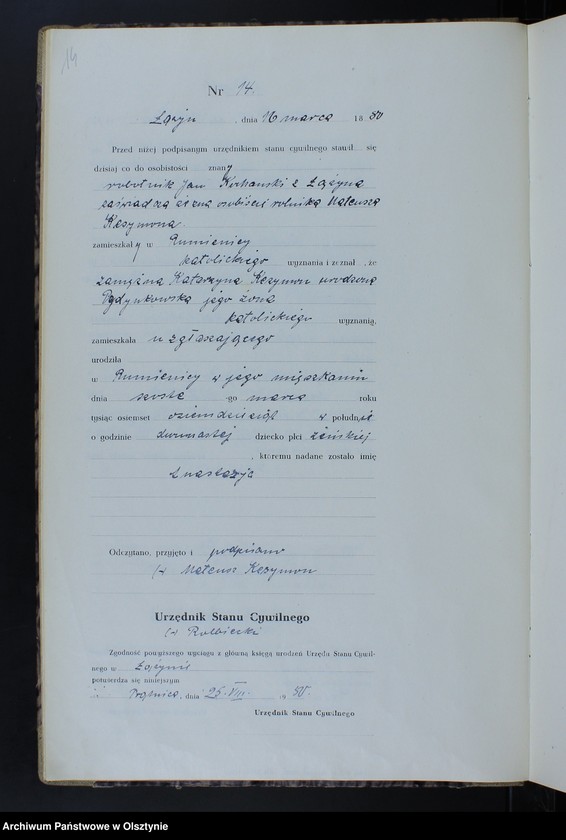 14
Nr 14.
dnia 16 marca 18 80
Przed niżej podpisanym urzędnikiem stanu cywilnego stawił się
dzisiaj co do osobistości znany
robotnik Jan Kochanski z
osobiści rolnika Mateusza
Kezymona.
zamieszkały w Rumienicy
katolickiego wyznania i zeznał, że
zamężna Katarzyna Kezymon urodzona
jego żona
katolickiego wyznania,
zamieszkała u zgłaszającego
urodziła
w Rumienicy w jego mieszkaniu
dnia szóste go marca roku
tysiąc osiemset osiemdziesiąt w południe
o godzinie dwunastej dziecko płci żeńskiej
, któremu nadane zostało imię
Anastazja
Odczytano, przyjęto i podpisano
(-) Mateusz Kezymon
Urzędnik Stanu Cywilnego
(-) Rolbiecki
Zgodność powyższego wyciągu z główną księgą urodzeń Urzędu Stanu Cywil-
nego w
potwierdza się niniejszym
Prątnica, dnia 25.VIII. 19
Urzędnik Stanu Cywilnego
Archiwum Państwowe w Olsztynie